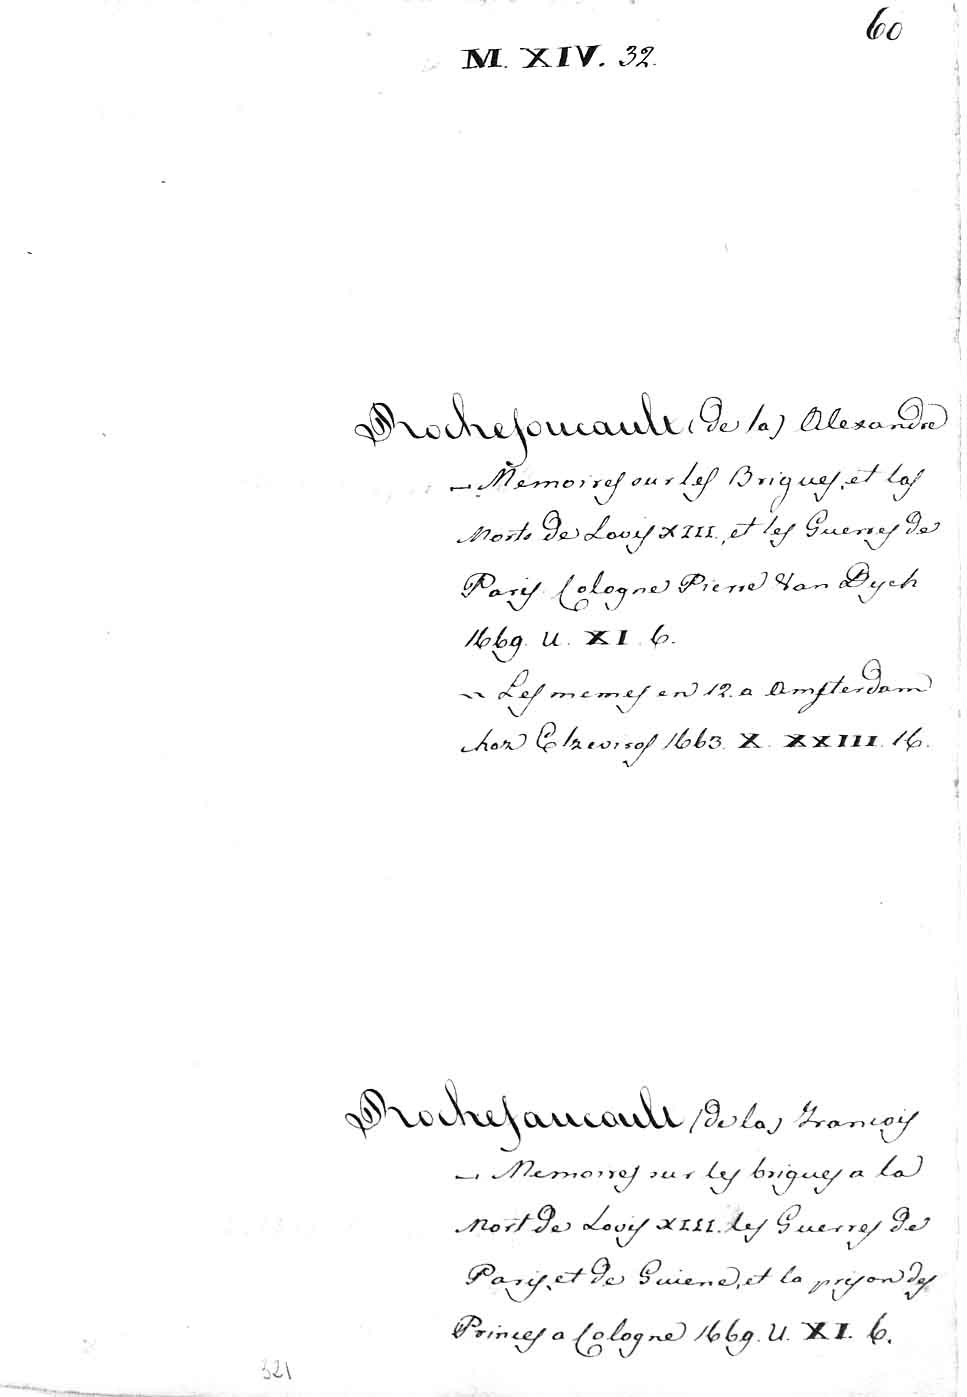 60
M. XIV. 32.
Rochefoucault (de la) Alexandre
— Memoires sur les Brigues, et las
Morts de Lovis XIII., et les Guerres de
Paris. Cologne Pierre Van Dych
1669. U. XI. 6.
~ Les memes en 12. a Amsterdam
chez Elzevires 1663. X. XXIII. 16.
Rochefaucault (de la) Francois
— Memoires sur les brigues a la
Mort de Lovis XIII. les Guerres de
Paris, et de Guiene, et la prison des
Princes a Cologne 1669. U. XI. 6.
321